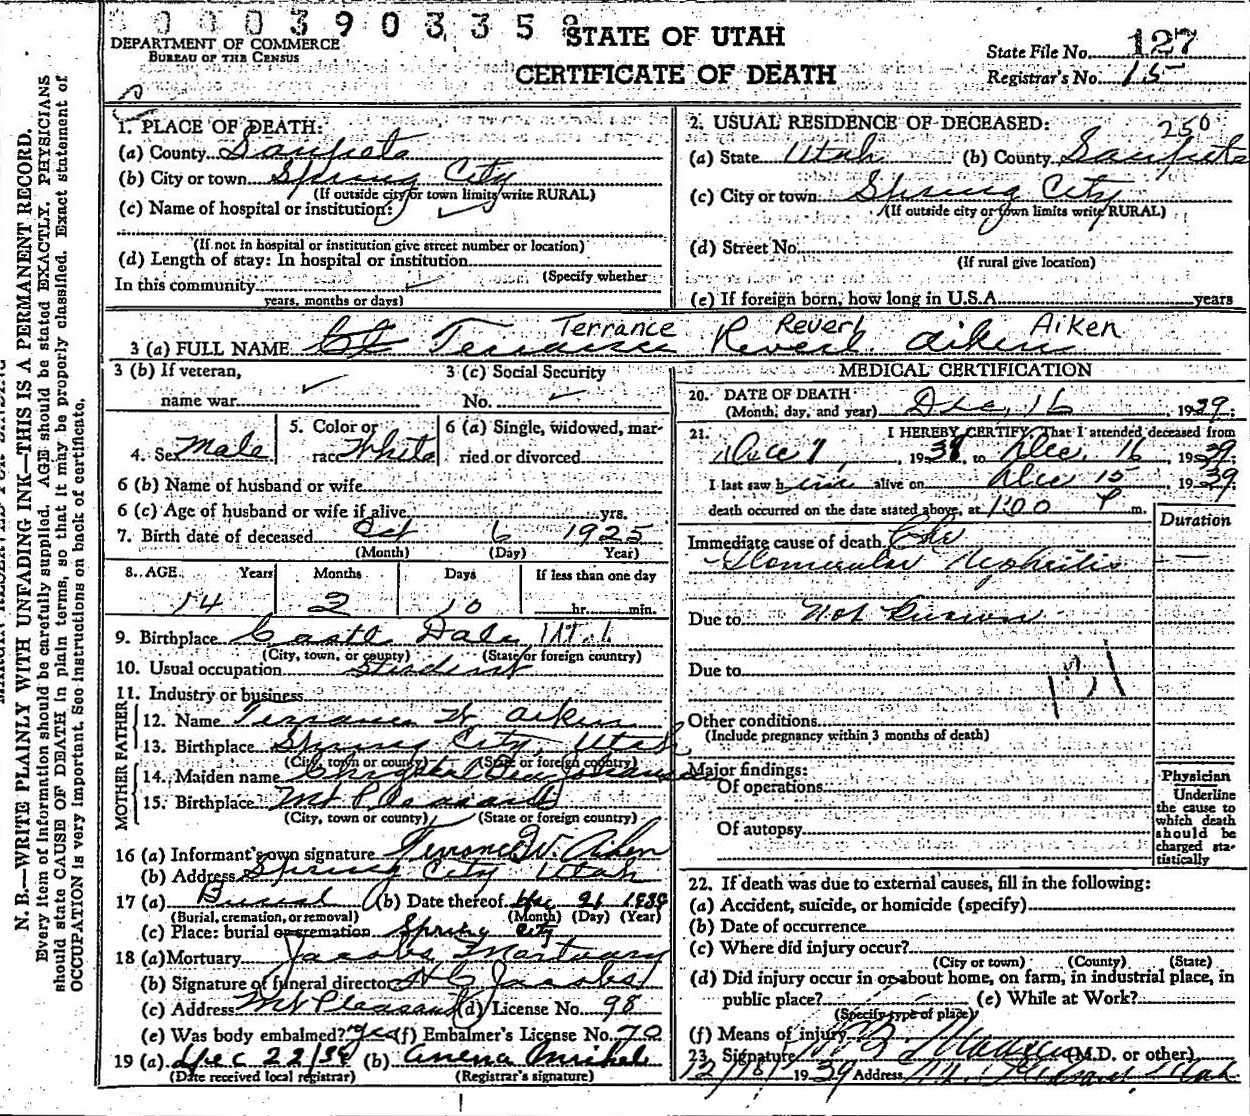 0000390335
STATE OF UTAH
CERTIFICATE OF DEATH
DEPARTMENT OF COMMERCE
BUREAU OF THE CENSUS
State File No. 127
Registrar's No. 15
N. B.—WRITE PLAINLY WITH UNFADING INK—THIS IS A PERMANENT RECORD.
Every item of information should be carefully supplied. AGE should be stated EXACTLY. PHYSICIANS
should state CAUSE OF DEATH in plain terms, so that it may be properly classified. Exact statement of
OCCUPATION is very important. See instructions on back of certificate.
1. PLACE OF DEATH:
(a) County Sanpete
(b) City or town Spring City
(If outside city or town limits write RURAL)
(c) Name of hospital or institution:
(If not in hospital or institution give street number or location)
(d) Length of stay: In hospital or institution
(Specify whether
In this community
years, months or days)
2. USUAL RESIDENCE OF DECEASED: 250
(a) State Utah (b) County Sanpete
(c) City or town Spring City
(If outside city or town limits write RURAL)
(d) Street No.
(If rural give location)
(e) If foreign born, how long in U.S.A. years
Terrance Reverl Aiken
3 (a) FULL NAME Terrance Reverl Aiken
3 (b) If veteran,
name war
3 (c) Social Security
No.
4. Sex Male
5. Color or
race White
6 (a) Single, widowed, mar-
ried or divorced
6 (b) Name of husband or wife
6 (c) Age of husband or wife if alive yrs.
7. Birth date of deceased Oct 6 1925
(Month) (Day) Year)
8. AGE Years Months Days If less than one day
14 2 10 hr. min.
9. Birthplace Castle Dale Utah
(City, town, or county) (State or foreign country)
10. Usual occupation Student
11. Industry or business
FATHER
12. Name Terrance W. Aiken
13. Birthplace Spring City, Utah
(City, town or county) (State or foreign country)
MOTHER
14. Maiden name
15. Birthplace Mt Pleasant
(City, town or county) (State or foreign country)
16 (a) Informant's own signature Terrance W. Aiken
(b) Address Spring City Utah
17 (a) Burial (b) Date thereof Dec 21 1939
(Burial, cremation, or removal) (Month) (Day) (Year)
(c) Place: burial or cremation Spring City
18 (a) Mortuary Jacobs Mortuary
(b) Signature of funeral director H C Jacobs
(c) Address Mt Pleasant (d) License No. 98
(e) Was body embalmed? yes (f) Embalmer's License No. 70
19 (a) Dec 22/39 (b)
(Date received local registrar) (Registrar's signature)
MEDICAL CERTIFICATION
20. DATE OF DEATH
(Month, day, and year) Dec, 16, 1939
21. I HEREBY CERTIFY, That I attended deceased from
Dec 1, 1938, to Dec. 16, 1939;
I last saw him alive on Dec 15, 1939
death occurred on the date stated above, at 1:00 P m.
Duration
Immediate cause of death Chr
Glomerular Nephritis
Due to Not known
Due to
131
Other conditions
(Include pregnancy within 3 months of death)
Major findings:
Of operations
Of autopsy
Physician
Underline
the cause to
which death
should be
charged sta-
tistically
22. If death was due to external causes, fill in the following:
(a) Accident, suicide, or homicide (specify)
(b) Date of occurrence
(c) Where did injury occur?
(City or town) (County) (State)
(d) Did injury occur in or about home, on farm, in industrial place, in
public place? (e) While at Work?
(Specify type of place)
(f) Means of injury
23. Signature (M.D. or other)
12/18/ 1939 Address Mt. Pleasant Utah